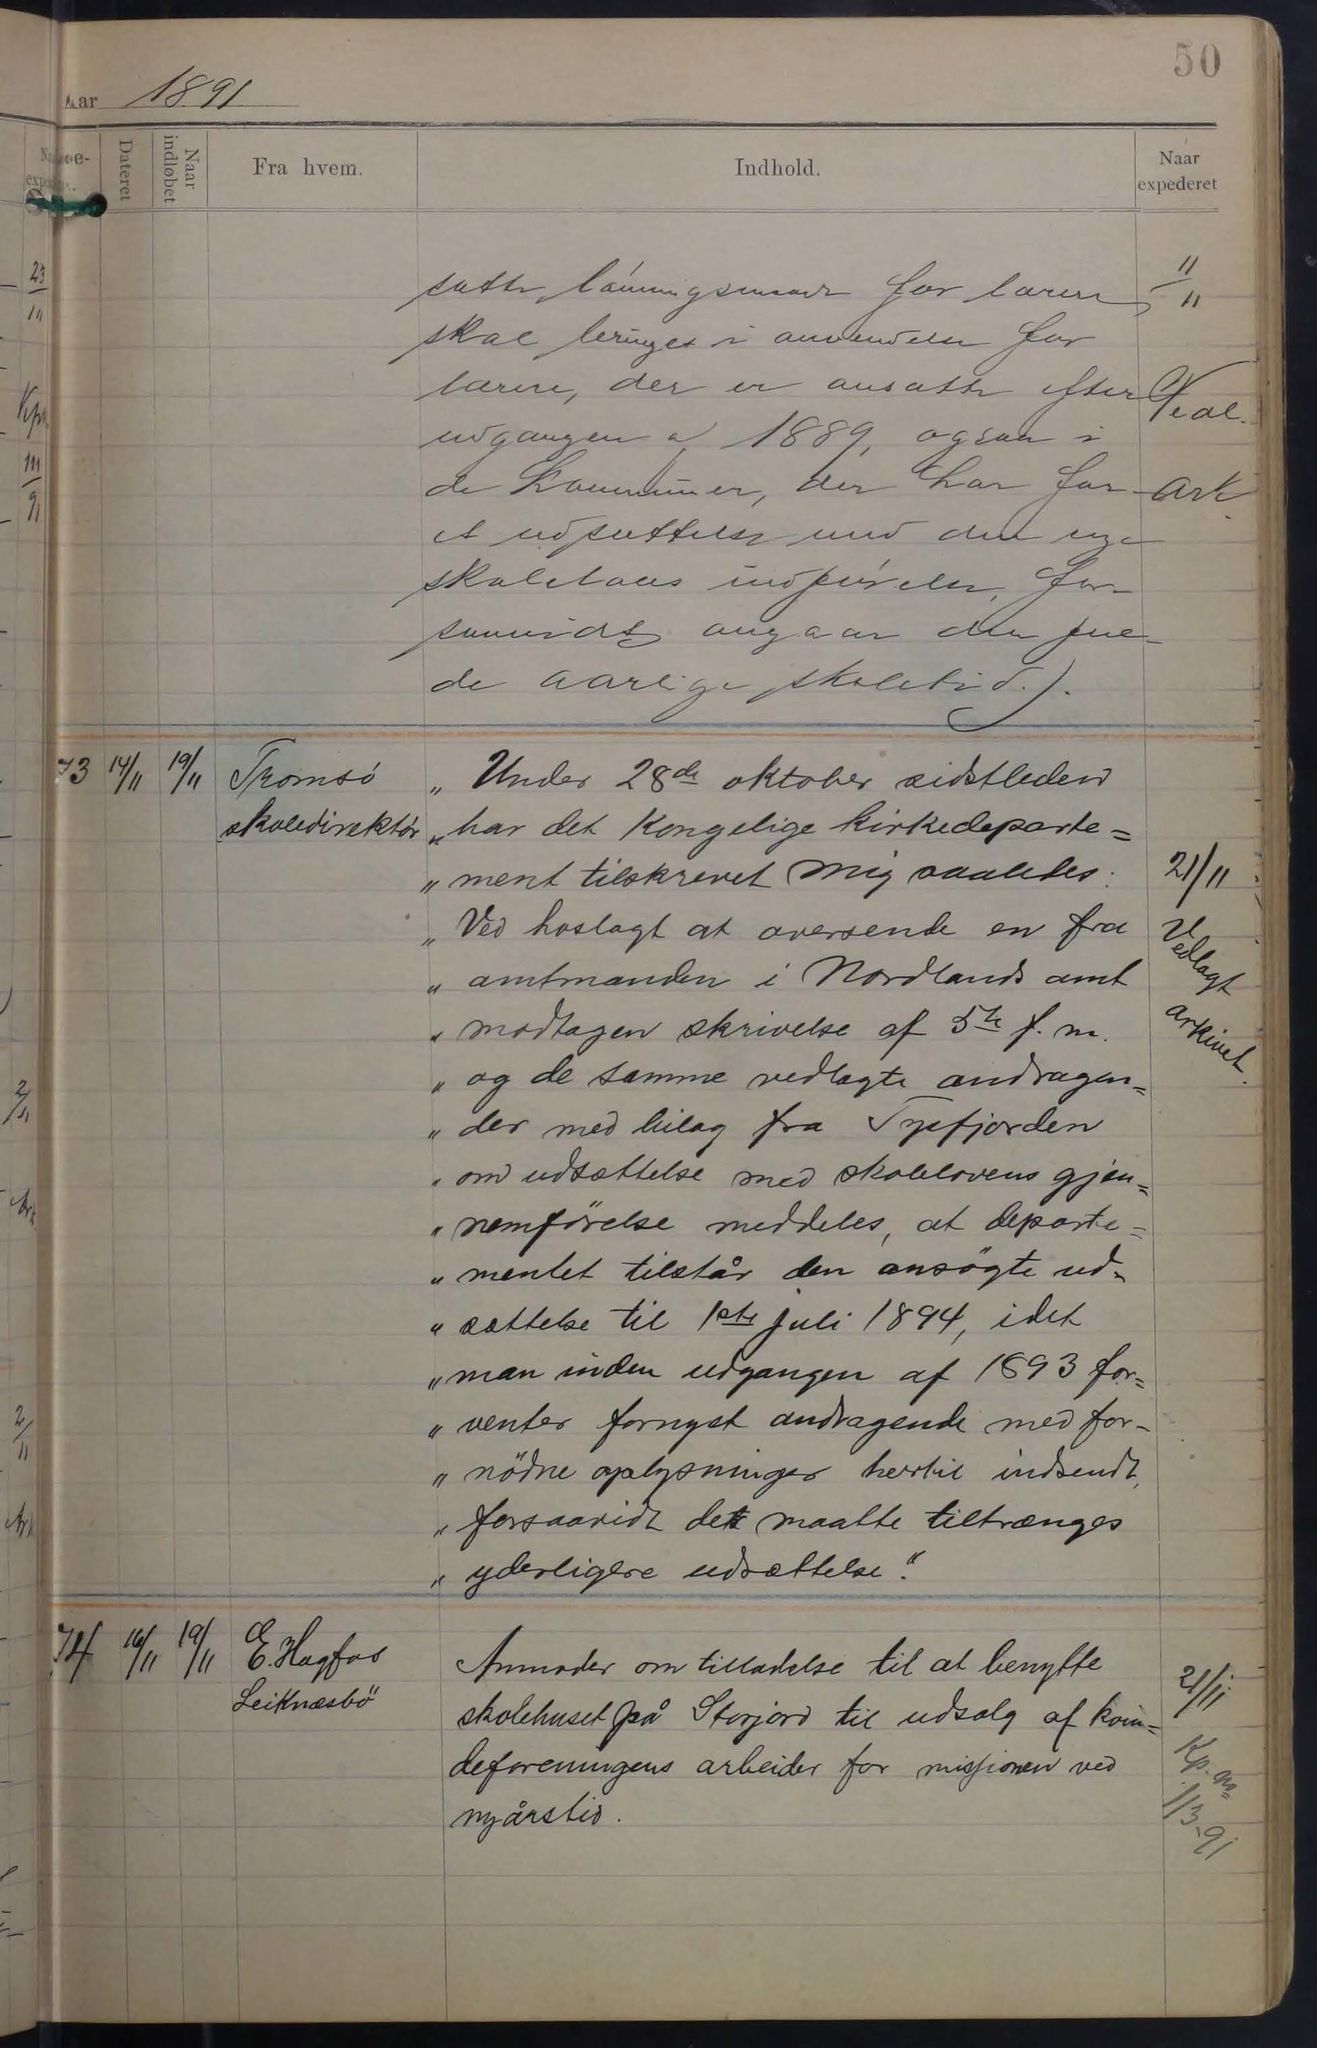 50
Aar 1891
Dateret
Naar indløbet
Fra hvem.
Indhold.
Naar expederet
satte lønningsmaade for lærere
skal bringes i anvendelse for
lærere, der er ansatte efter
udgangen af 1889, ogsaa i
de kommuner, der har faa-
et udsættelse med den nye
skolelovs indførelse, for
saavidt angaar den fulde
aarlige skoletid.).
11/11
Ark
73 14/11 19/11 Tromsö
skoledirektör
„ Under 28de oktober sidstleden
„ har det Kongelige kirkedeparte=
„ ment tilskrevet mig saaledes:
„ Ved hoslagt at oversende en fra
„ amtmanden i Nordlands amt
„ modtagen skrivelse af 5te f. m.
„ og de samme vedlagte andragen=
„ der med bilag fra Tysfjorden
„ om udsættelse med skolelovens gjen=
„ nemförelse meddeles, at departe=
„ mentet tilstår den ansögte ud=
„ sættelse til 1ste juli 1894, idet
„ man inden udgangen af 1893 for=
„ venter fornyet andragende med for-
„ nödne oplysninger hertil indsendt,
„ forsaavidt det maatte tiltrænges
„ yderligere udsættelse."
21/11
Vedlagt
arkivet.
74 16/11 19/11 E. Hagfos
Leiknæsbö
Anmoder om tilladelse til at benytte
skolehuset på Storjord til udsalg af kvin=
deforeningens arbeider for missionen ved
nyårstid.
21/11
Kp. no
113-91